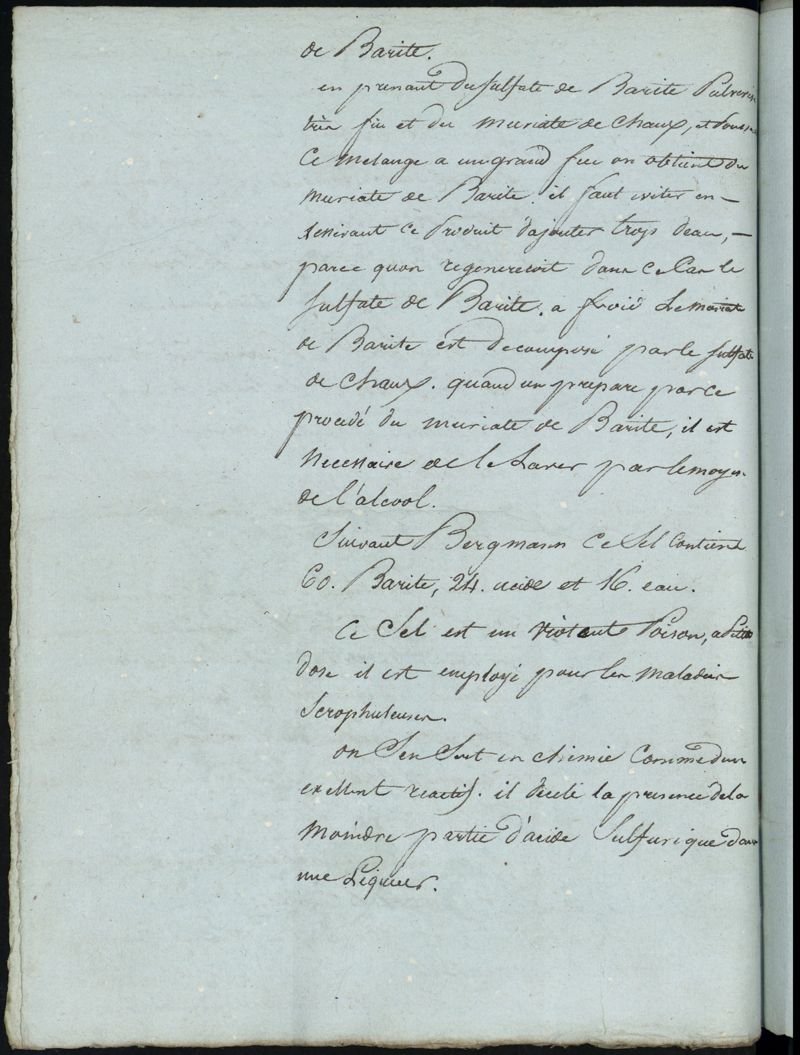 de Barite.
en prenant du sulfate de Barite Pulver
très fin et du muriate de chaux, et
Ce melange a un grand feu on obtient du
muriate de Barite. il faut eviter en –
lessivant ce Produit d'ajouter trop d'eau, –
parce qu'on regenereroit dans ce Cas le
sulfate de Barite. a froid Le muriate
de Barite est decomposé par le sulfate
de chaux. quand on prepare par ce
procédé du muriate de Barite, il est
necessaire de le Laver par le moyen
de l'alcool.
Suivant Bergmann Ce Sel Contient
60. Barite, 24. acide et 16. eau.
Ce Sel est un violent Poison, a Petite
dose il est employé pour les maladies
Scrophuleuses.
on S'en Sert en chimie Comme d'un
exellent reactif. il decele la presence de la
moindre partie d'acide Sulfurique dans
une Liqueur.